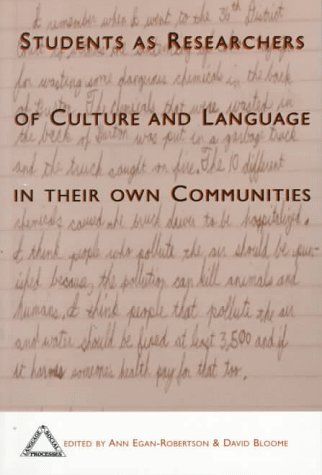 I remember when I went to the 36th District
STUDENTS AS RESEARCHERS
for wasting some dangrous chemicals in the back
of Burton. The chemicals that were wasted in
OF CULTURE AND LANGUAGE
the back of Burton was put in a garbage truck
and the truck caught on fire. The 10 different
IN THEIR OWN COMMUNITIES
chemicals caused the truck driver to be hospitalized.
I think people who pollute the air should be pun-
ished because, the pollution can kill animals and
humans. I think people that pollute the air
and water should be fined at least 3,500 and if
it harms someones health pay for that too.
LANGUAGE & SOCIAL PROCESSES
EDITED BY ANN EGAN-ROBERTSON & DAVID BLOOME